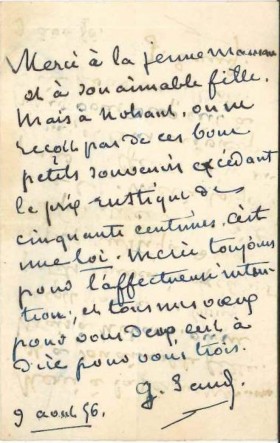 Merci à la jeune maman
et à son aimable fille.
Mais à Nohant, on ne
reçoit pas de ces bons
petits souvenirs excédant
le prix rustique de
cinquante centimes. C'est
une loi. Merci toujours
pour l'affectueuse inten-
tion, et tous mes vœux
pour vous deux, c'est à
dire pour vous trois.
G. Sand
9 août 56.